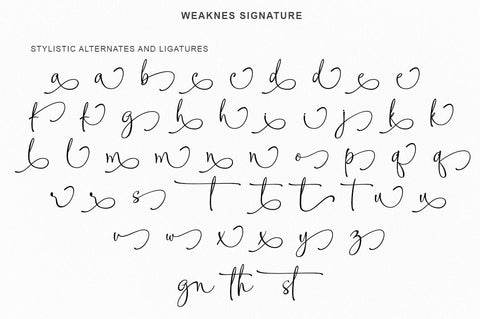 WEAKNES SIGNATURE
STYLISTIC ALTERNATES AND LIGATURES
a a b c c d d e e
f f g h h i i j k k
l l m m n n o p q q
r r s t t t t u u
v w x x y z
gn th st